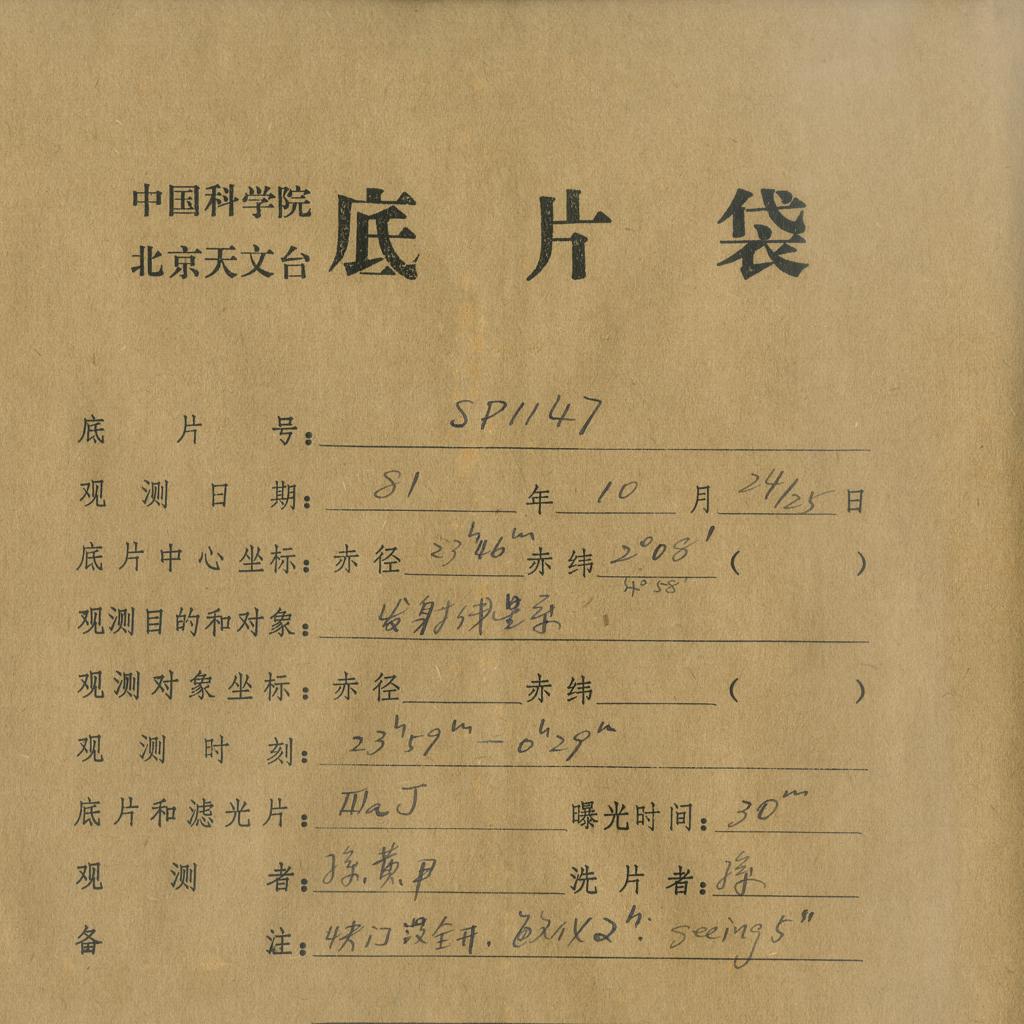 中国科学院
北京天文台
底片袋
底片号: SP1147
观测日期: 81年10月24/25日
底片中心坐标: 赤径 23ʰ46ᵐ 赤纬 2°08′ ( )
4°58′
观测目的和对象: 发射线星系
观测对象坐标: 赤径 赤纬 ( )
观测时刻: 23ʰ59ᵐ — 0ʰ29ᵐ
底片和滤光片: IIIaJ 曝光时间: 30ᵐ
观测者: 孙.黄. 洗片者: 孙
备注: 快门没全开. 2ʰ. seeing 5″